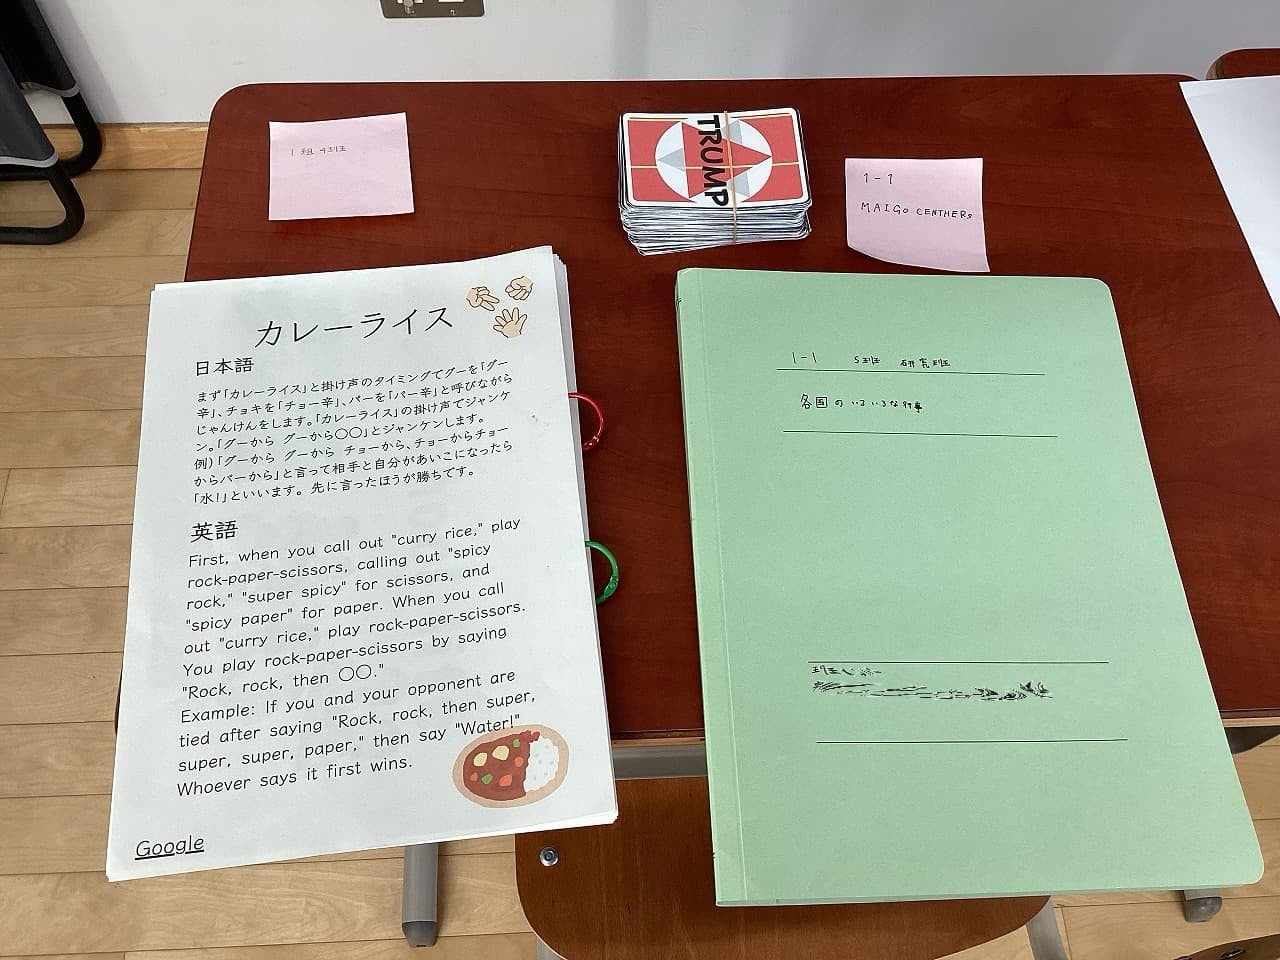 1組4班
TRUMP
1-1
MAIGO CENTHERS
カレーライス
日本語
まず「カレーライス」と掛け声のタイミングでグーを「グー
辛」、チョキを「チョー辛」、パーを「パー辛」と呼びながら
じゃんけんをします。「カレーライス」の掛け声でジャンケ
ン。「グーから グーから〇〇」とジャンケンします。
例)「グーから グーから チョーから、チョーからチョー
からパーから」と言って相手と自分があいこになったら
「水!」といいます。先に言ったほうが勝ちです。
英語
First, when you call out "curry rice," play
rock-paper-scissors, calling out "spicy
rock," "super spicy" for scissors, and
"spicy paper" for paper. When you call
out "curry rice," play rock-paper-scissors.
You play rock-paper-scissors by saying
"Rock, rock, then 〇〇."
Example: If you and your opponent are
tied after saying "Rock, rock, then super,
super, super, paper," then say "Water!"
Whoever says it first wins.
Google
1-1 5班 研究班
各国のいろいろな行事